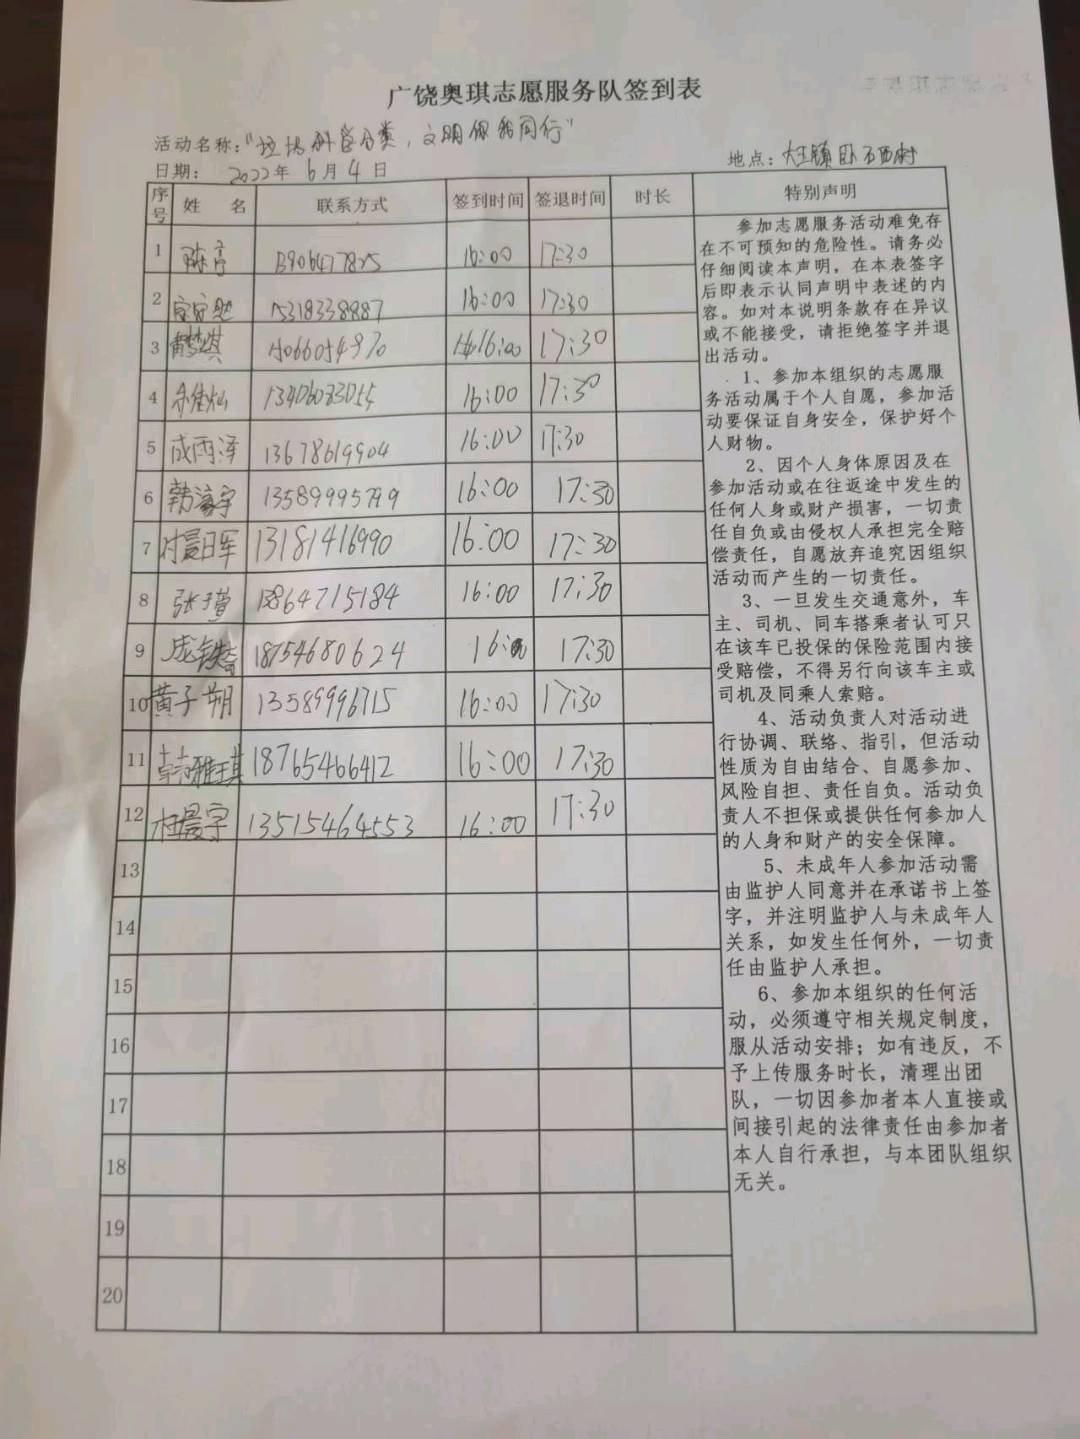 广饶奥琪志愿服务队签到表
活动名称：“垃圾科学分类，文明你我同行”
日期： 2022年 6月 4日
地点：大王镇 卧石西村
序号 姓 名 联系方式 签到时间 签退时间 时长 特别声明
1 陈亭 13906477825 16:00 17:30
2 15318338887 16:00 17:30
3 15066054970 16:00 17:30
4 13406083054 16:00 17:30
5 成雨泽 13678619904 16:00 17:30
6 韩濠宇 13589995799 16:00 17:30
7 13181416990 16:00 17:30
8 张子萱 13864715184 16:00 17:30
9 18754680624 16:00 17:30
10 黄子朔 13589996715 16:00 17:30
11 韩雅琪 18765466412 16:00 17:30
12 晨宇 13515464553 16:00 17:30
13
14
15
16
17
18
19
20
参加志愿服务活动难免存
在不可预知的危险性。请务必
仔细阅读本声明，在本表签字
后即表示认同声明中表述的内
容。如对本说明条款存在异议
或不能接受，请拒绝签字并退
出活动。
1、参加本组织的志愿服
务活动属于个人自愿，参加活
动要保证自身安全，保护好个
人财物。
2、因个人身体原因及在
参加活动或在往返途中发生的
任何人身或财产损害，一切责
任自负或由侵权人承担完全赔
偿责任，自愿放弃追究因组织
活动而产生的一切责任。
3、一旦发生交通意外，车
主、司机、同车搭乘者认可只
在该车已投保的保险范围内接
受赔偿，不得另行向该车主或
司机及同乘人索赔。
4、活动负责人对活动进
行协调、联络、指引，但活动
性质为自由结合、自愿参加、
风险自担、责任自负。活动负
责人不担保或提供任何参加人
的人身和财产的安全保障。
5、未成年人参加活动需
由监护人同意并在承诺书上签
字，并注明监护人与未成年人
关系，如发生任何外，一切责
任由监护人承担。
6、参加本组织的任何活
动，必须遵守相关规定制度，
服从活动安排；如有违反，不
予上传服务时长，清理出团
队，一切因参加者本人直接或
间接引起的法律责任由参加者
本人自行承担，与本团队组织
无关。